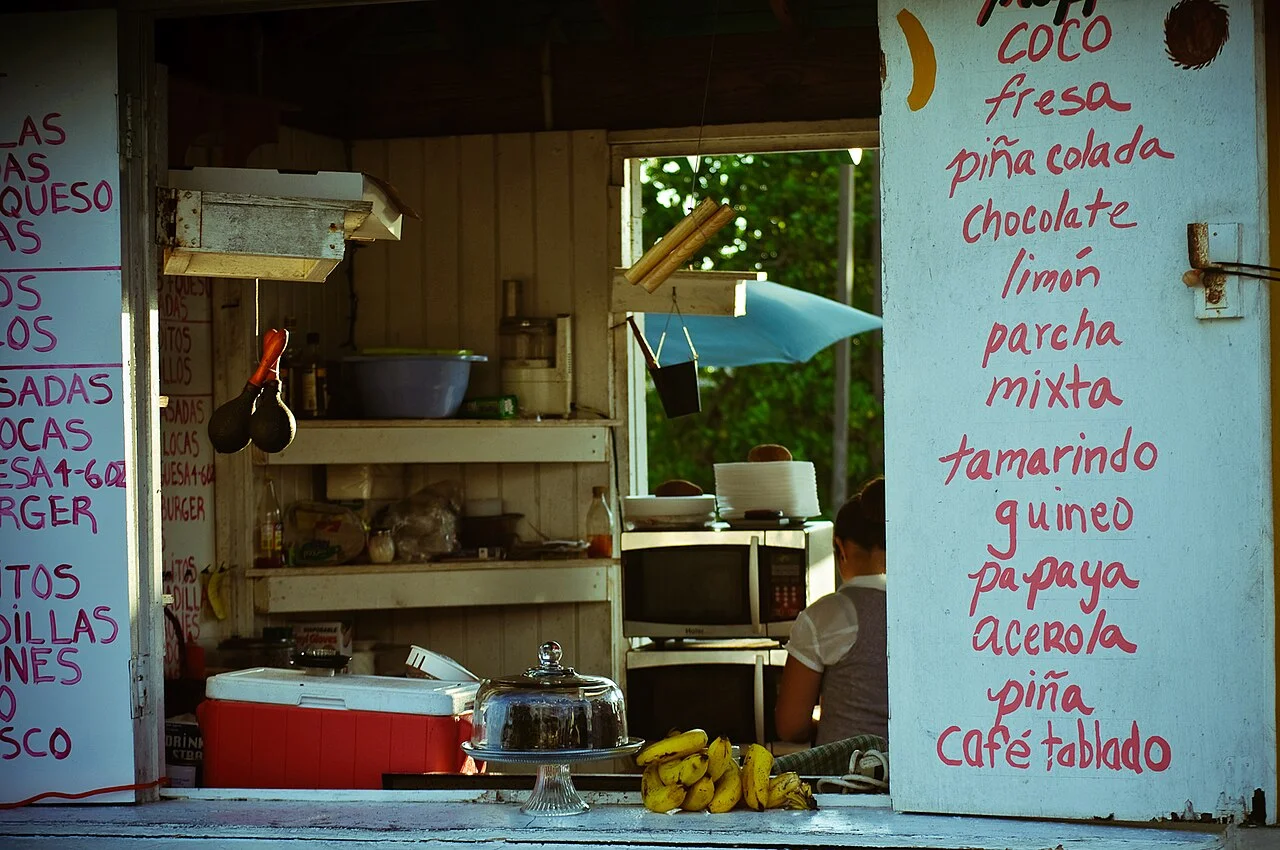 LAS
DAS
QUESO
AS
OS
LOS
SADAS
OCAS
ESA 4-6OZ
RGER
ITOS
DILLAS
ONES
O
SCO
QUESO
DAS
ITOS
LLOS
SADAS
LOCAS
UESA 4-6OZ
BURGER
ITOS
DILLAS
NES
DRINK
COCO
fresa
piña colada
chocolate
limón
parcha
mixta
tamarindo
guineo
papaya
acerola
piña
café tablado